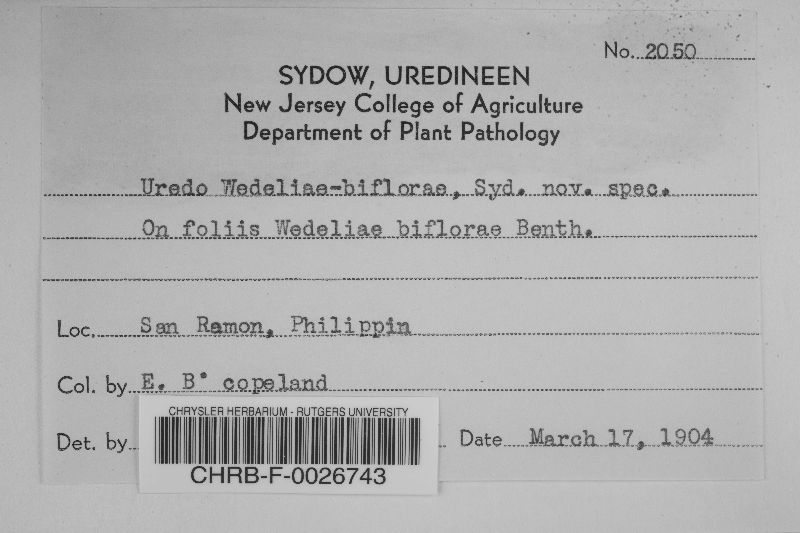 No. 2050
SYDOW, UREDINEEN
New Jersey College of Agriculture
Department of Plant Pathology
Uredo Wedeliae-biflorae, Syd. nov. spec.
On foliis Wedeliae biflorae Benth.
Loc. San Ramon, Philippin
Col. by E. B° copeland
Det. by Date March 17, 1904
CHRYSLER HERBARIUM - RUTGERS UNIVERSITY
CHRB-F-0026743